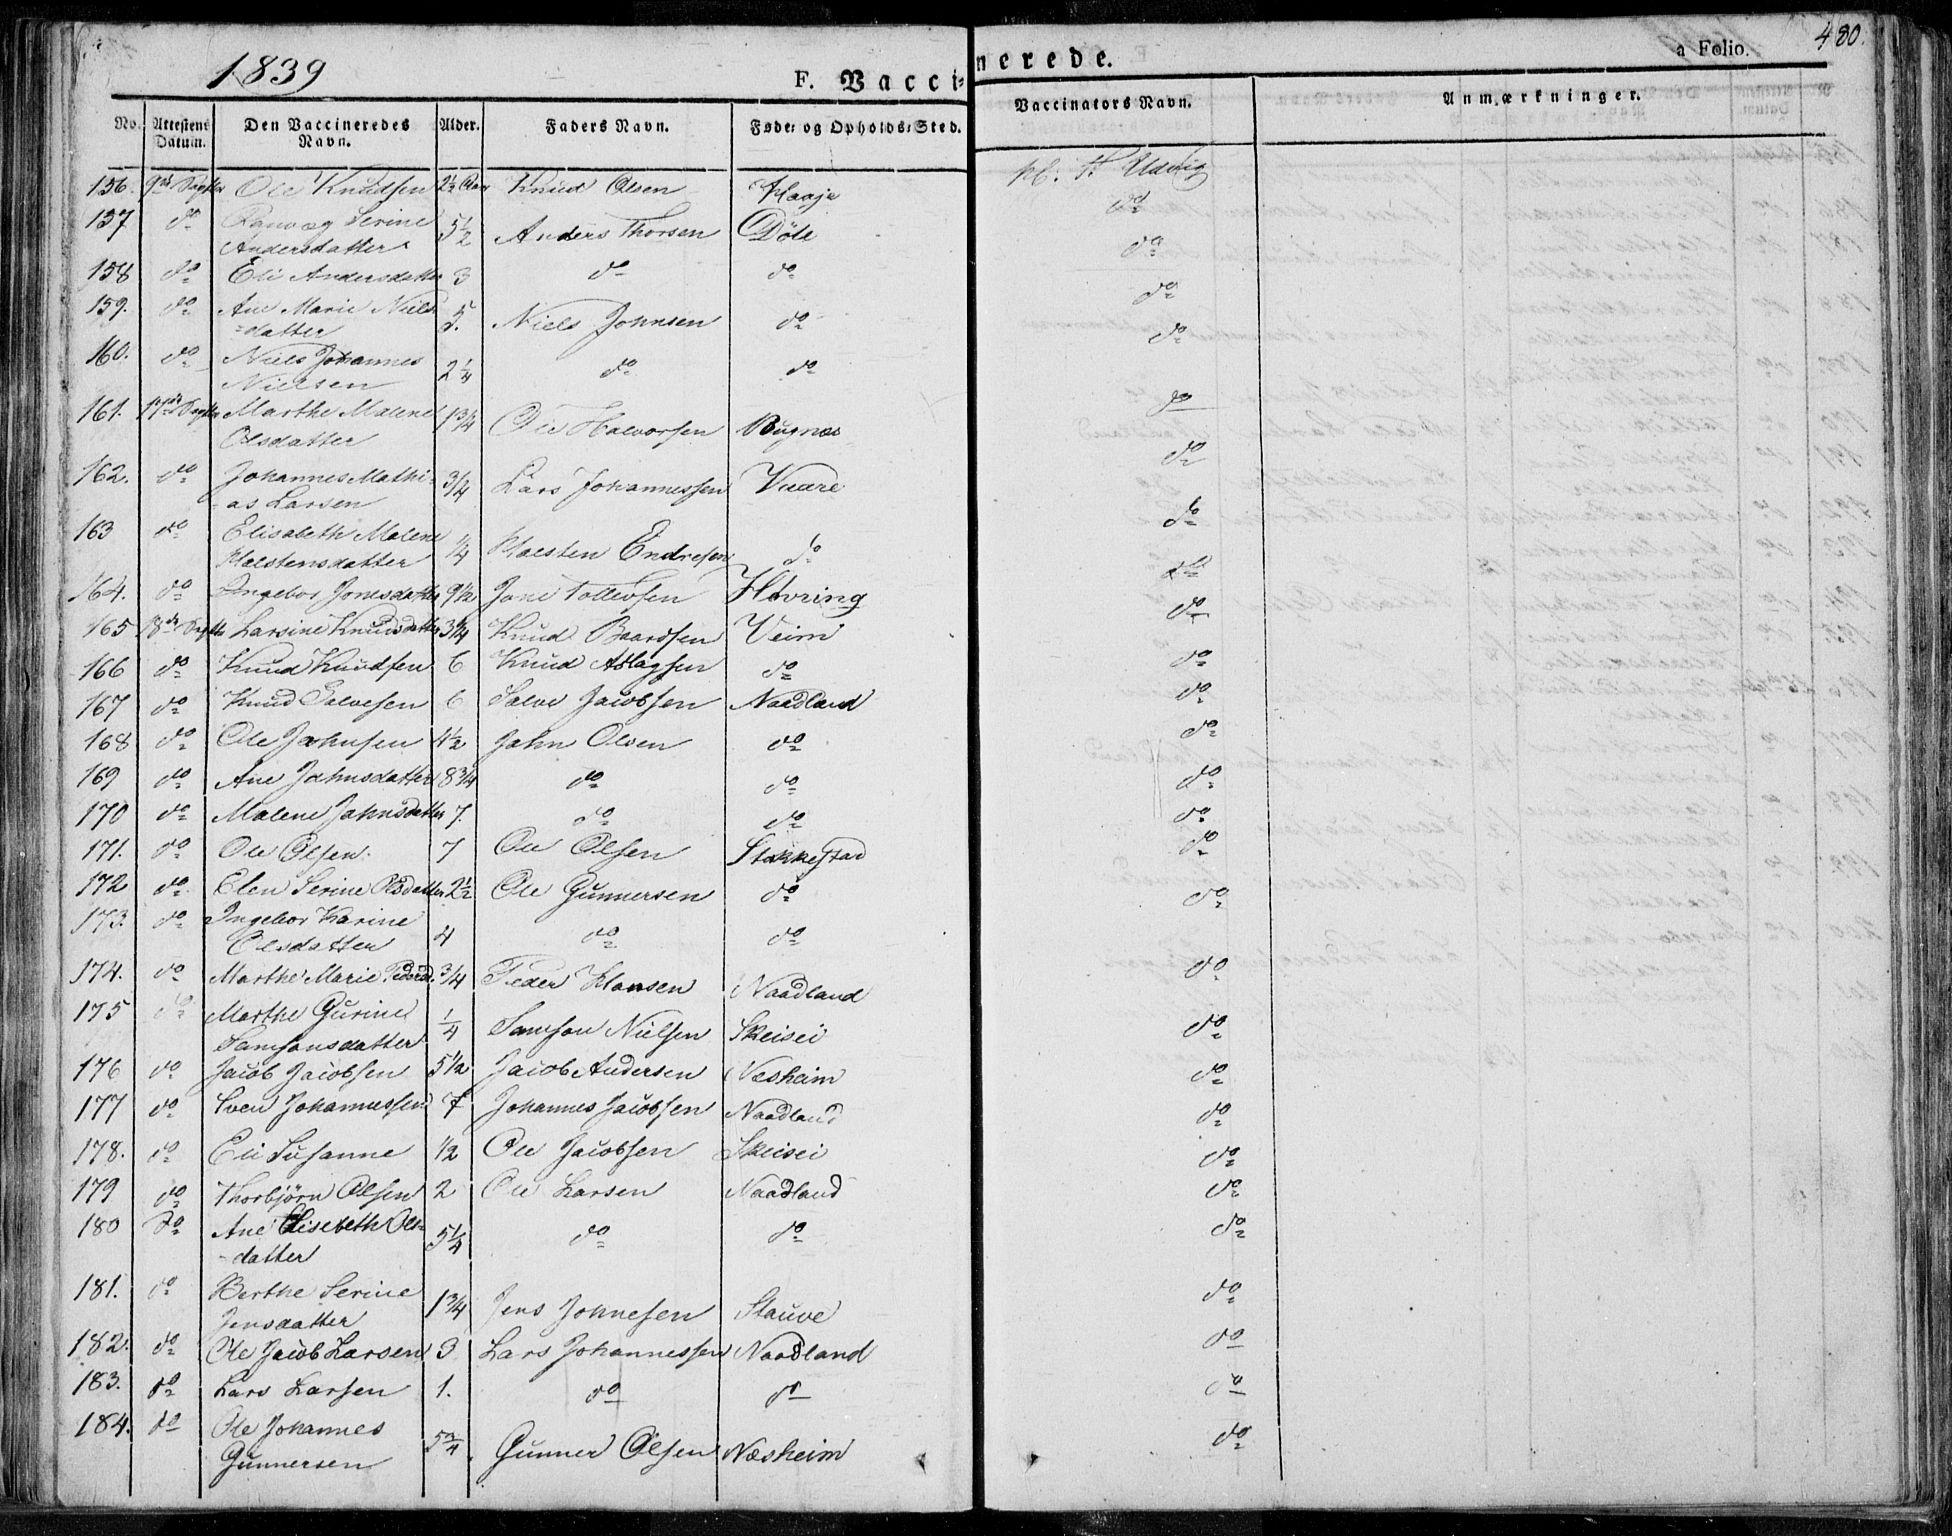 1839
F. Vaccinerede.
a Folio. 480.
No. Attestens Datum. Den Vaccineredes Navn. Alder. Faders Navn. Føde- og Opholds-Sted. Vaccinators Navn. Anmærkninger.
156. 9de Ole Knudsen 2½ Knud Olsen Haaje
137 do Serine Andersdatter 5½ Anders Thorsen Döle do
158 do Eli Andersdatter 3 do do do
159. do Ane Marie Niels-
datter 5. Niels Johnsen do do
160. do Niels Johannes
Nielsen 2¼ do do do
161. 17de Marthe Malene
Olsdatter 1¾ Ole Halvorsen Bugnæs do
162. do Johannes Mathi-
as Larsen ¾ Lars Johannessen Vaare do
163 do Elisabeth Malene
Halstensdatter ¼ Halsten Endresen do do
164. do Ingebor Jonesdatter 9½ Jone Tollevsen Hovring do
165 18de Larsine Knudsdatter 3¼ Knud Baardsen Veim do
166 do Knud Knudsen 6 Knud Aslagsen do do
167 do Knud Salvesen 6 Salve Jacobsen Naadland do
168 do Ole Johnsen 4½ John Olsen do do
169 do Ane Johnsdatter 8¾ do do do
170 do Malene Johnsdatter 7. do do do
171. do Ole Olsen. 7 Ole Olsen Stakkestad do
172 do Elen Serine Olsdatter 2½ Ole Gunnersen do do
173. do Ingebor Karine
Olsdatter 4 do do
174. do Marthe Marie Pedersd. ¾ Peder Hansen Naadland do
175 do Marthe Gurine
Samsonsdatter ¼ Samson Nielsen Skeisei do
176 do Jacob Jacobsen 5½ Jacob Andersen Næsheim do
177 do Sven Johannessen 7 Johannes Jacobsen Naadland do
178. do Eli Susanne ½ Ole Jacobsen Skeisei do
179 do Thorbjörn Olsen 2 Ole Larsen Naadland do
180 do Ane Elisebeth Ols-
-datter 5¼ do do do
181. do Berthe Serine
Jensdatter 1¾ Jens Johnesen Stauve do
182. do Ole Jacob Larsen 3 Lars Johannessen Naadland do
183. do Lars Larsen 1. do do do
184. do Ole Johannes
Gunnersen 5¾ Gunner Olsen Næsheim do